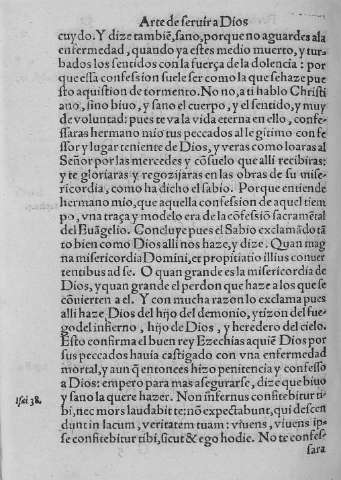 Arte de seruir a Dios
cuydo. Y dize tambiẽ, sano, porque no aguardes a la
enfermedad, quando ya estes medio muerto, y tur-
bados los sentidos con la fuerça de la dolencia: por
que essa confession suele ser como la que se haze pue
sto a quistion de tormento. No no, a ti hablo Christi
ano, sino biuo, y sano el cuerpo, y el sentido, y muy
de voluntad: pues te va la vida eterna en ello, confe-
ssaras hermano mio tus peccados al legitimo confe
ssor y lugar teniente de Dios, y veras como loaras al
Señor por las mercedes y cõsuelo que alli recibiras:
y te gloriaras y regozijaras en las obras de su mise-
ricordia, como ha dicho el sabio. Porque entiende
hermano mio, que aquella confession de aquel tiem
po, vna traça y modelo era de la cõfessiõ sacramẽtal
del Euãgelio. Concluye pues el Sabio exclamãdo tã
to bien como Dios alli nos haze, y dize. Quan mag
na misericordia Domini, et propitiatio illius conuer
tentibus ad se. O quan grande es la misericordia de
Dios, y quan grande el perdon que haze a los que se
cõuierten a el. Y con mucha razon lo exclama pues
alli haze Dios del hijo del demonio, y tizon del fue-
go del infierno, hijo de Dios, y heredero del cielo.
Esto confirma el buen rey Ezechias a quiẽ Dios por
sus peccados hauia castigado con vna enfermedad
mortal, y aun q̃ entonces hizo penitencia y confesso
a Dios: empero para mas asegurarse, dize que biuo
Isai 38. y sano la quere hazer. Non infernus confitebitur ti-
bi, nec mors laudabit te: nõ expectabunt, qui descen
dunt in lacum, veritatem tuam: viuens, viuens ip-
se confitebitur tibi, sicut & ego hodie. No te confes-
sara